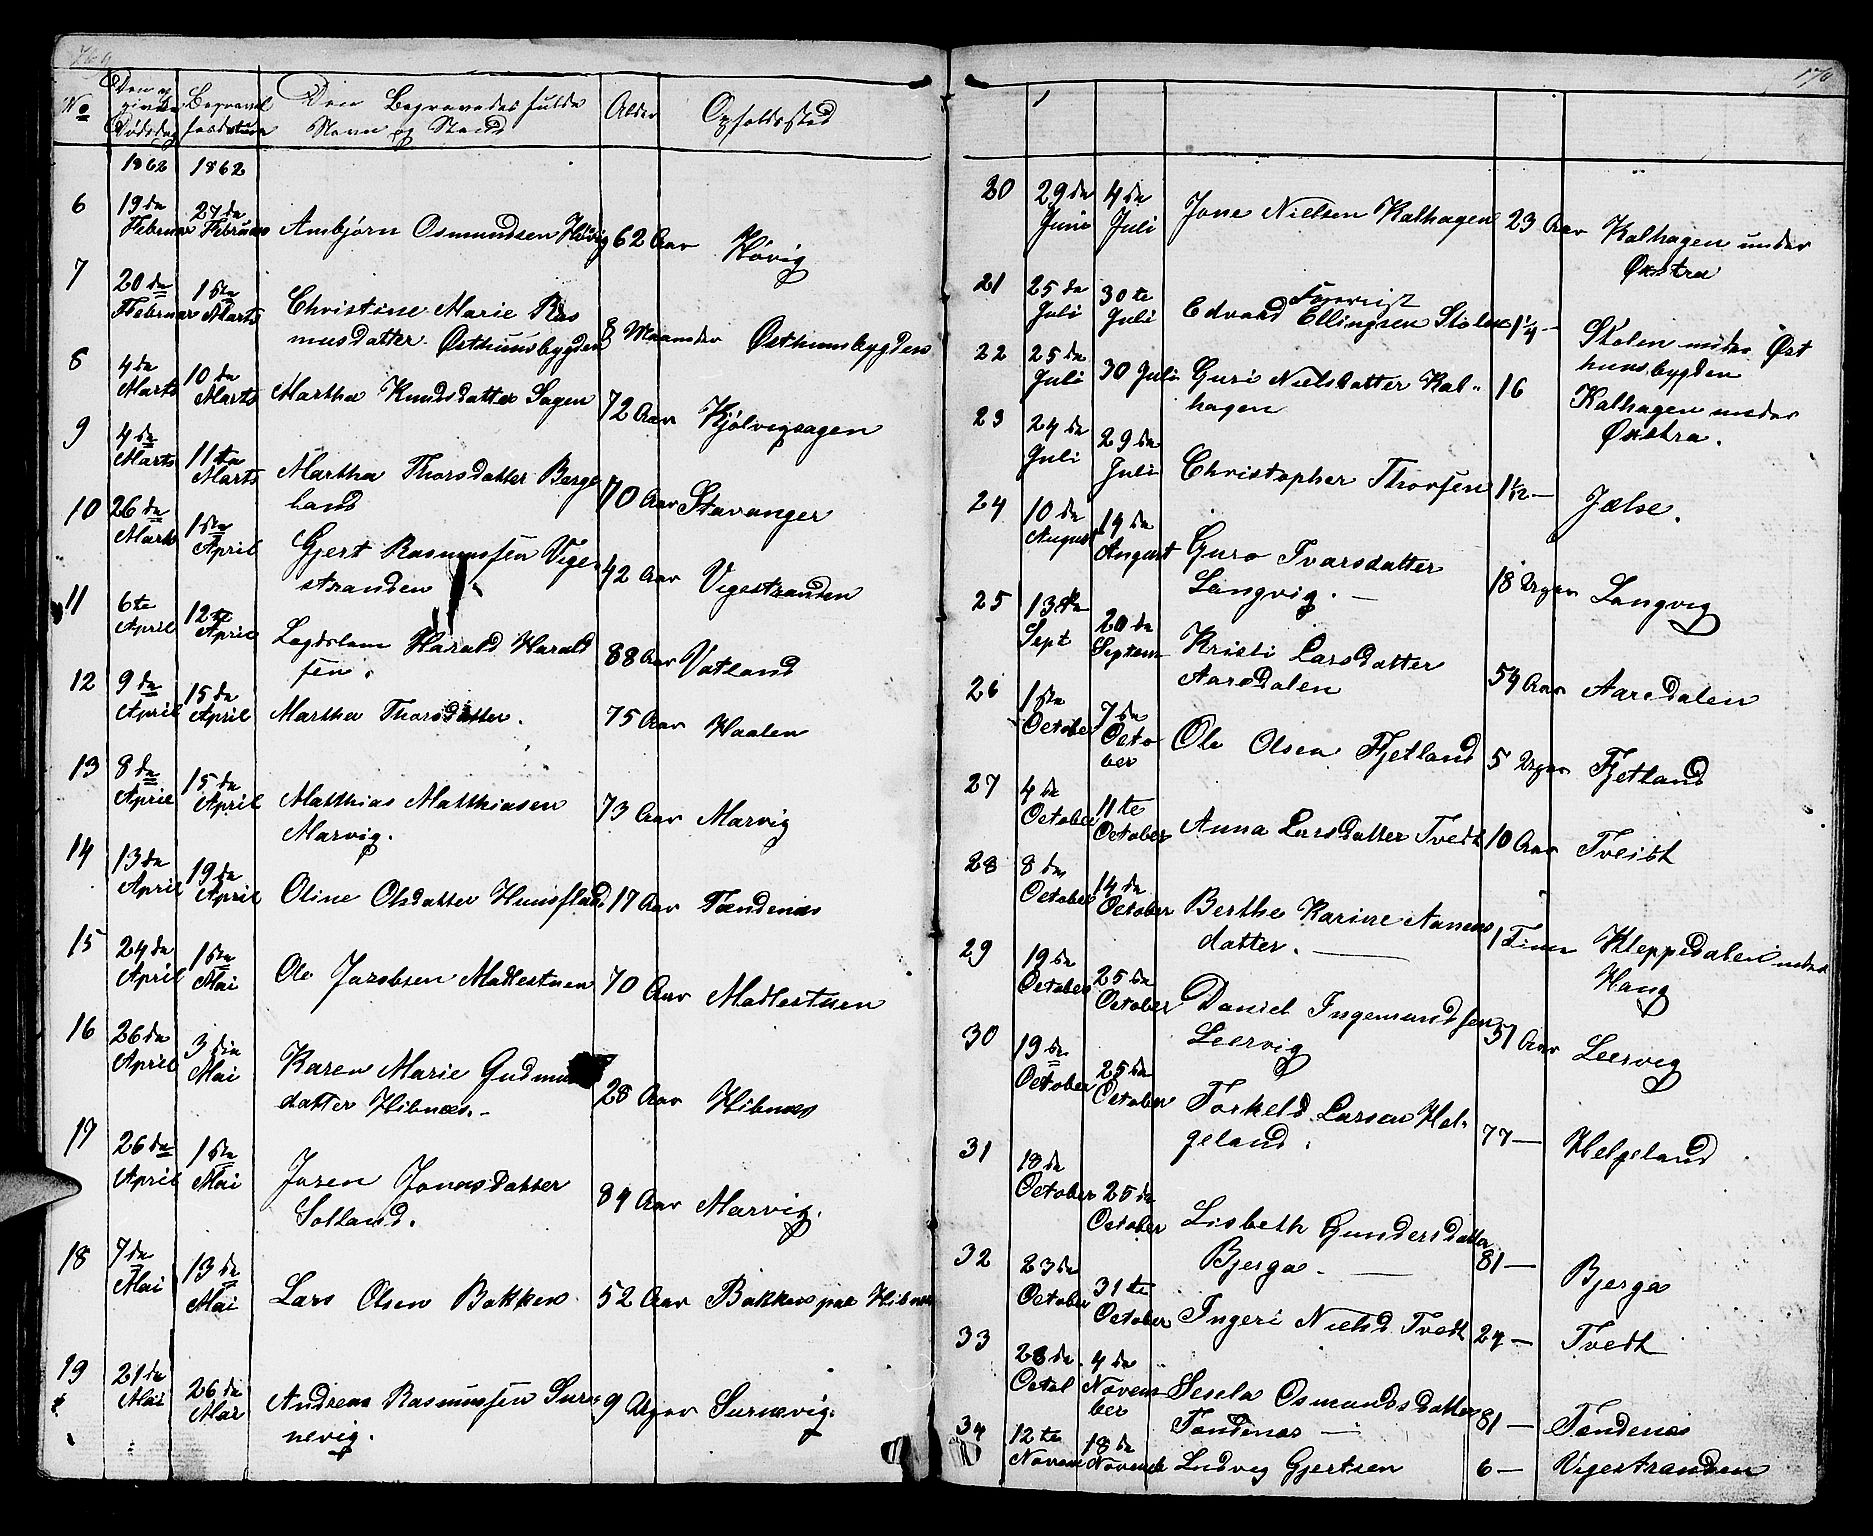 169
No
Den opgivne Dødsdag
Begravelsesdatum
Den Begravedes fulde Navn og Stand
Alder
Opholdssted
1862 1862
6 19de Februar 27de Februar Ambjørn Osmundsen Høvig 62 Aar Høvig
7 20de Februar 1ste Marts Christine Marie Ras
musdatter Østhuusbygden 8 Maaneder Østhuusbygden
8 4de Marts 10de Marts Martha Knudsdatter Sagen 72 Aar Kjølvigsagen
9 4de Marts 11te Marts Martha Thorsdatter Berge
land 70 Aar Stavanger
10 26de Marts 1ste April Gjert Rasmussen Vige-
stranden 42 Aar Vigestranden
11 6te April 12te April Legdslem Harald Harald
sen. 88 Aar Vatland
12 9de April 15de April Martha Thorsdatter. 75 Aar Haalen
13 8de April 15de April Matthias Matthiasen
Marvig. 73 Aar Marvig
14 13de April 19de April Oline Olsdatter 17 Aar Tændenæs
15 24de April 1ste Mai Ole Jacobsen Madlestuen 70 Aar Madlestuen
16 26de April 3die Mai Karen Marie
datter Hibnæs.- 28 Aar Hibnæs
17 26de April 1ste Mai Joren Jonasdatter
Solland. 84 Aar Marvig.
18 7de Mai 13de Mai Lars Olsen Bakken 52 Aar Bakken paa Hibnæs
19 21de Mai 26de Mai Andreas Rasmussen Surne
nevig. 9 Uger Surnevig.
170
20 29de Juni 4de Juli Jone Nielsen Kalhagen 23 Aar Kalhagen under
Økstra
21 25de Juli 30te Juli Edvard Ellingsen Stolen 1 1/4 - Stolen under Øst
huusbygden
22 25de Juli 30 Juli Guri Nielsdatter Kal-
hagen 16 Kalhagen under
Økstra.
23 24de Juli 29de Juli Christopher Thorsen 1 1/12 - Jælse.
24 10de August 19de August Guro Ivarsdatter
Langvig. - 18 Uger Langvig
25 13de Sept 20de Septem Kristi Larsdatter
Aarsdalen 54 Aar Aarsdalen
26 1ste October 7de October Ole Olsen Fjetland 5 Uger Fjetland
27 4de October 11te October Anna Larsdatter Tvedt 10 Aar Tveidt
28 8de October 14de October Berthe Karine Aanens
datter. - 1 Time Kleppedalen under
Haug
29 19de October 25de October Daniel Ingemundsen
Leervig 51 Aar Leervig
30 19de October 25de October Torkeld Larsen Hel-
geland. 77 - Helgeland
31 18de October 25de October Lisbeth Gundersdatter
Bjerga. - 81 - Bjerga
32 23de October 31te October Ingeri Nielsd Tvedt 24 - Tvedt
33 28de Octob 4de November Sesela Osmundsdatter
Tændenæs - 81 - Tændenæs
34 12te Novem 18de Novemb Ludvig Gjertsen 6 - Vigestranden